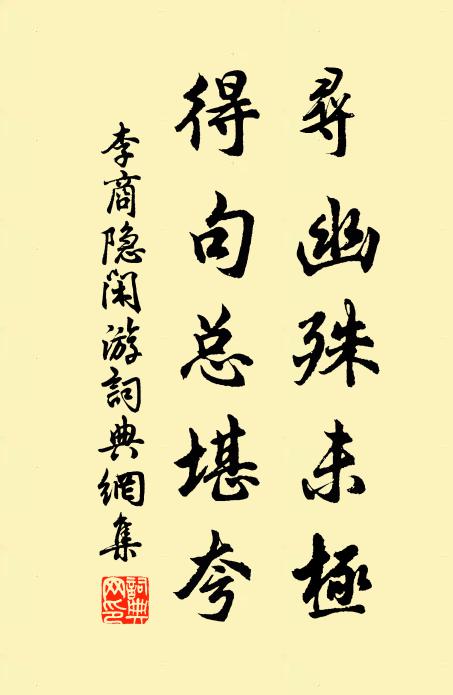 尋幽殊未極
得句总堪夸
李商隐閑游詞典網集
詞典网印